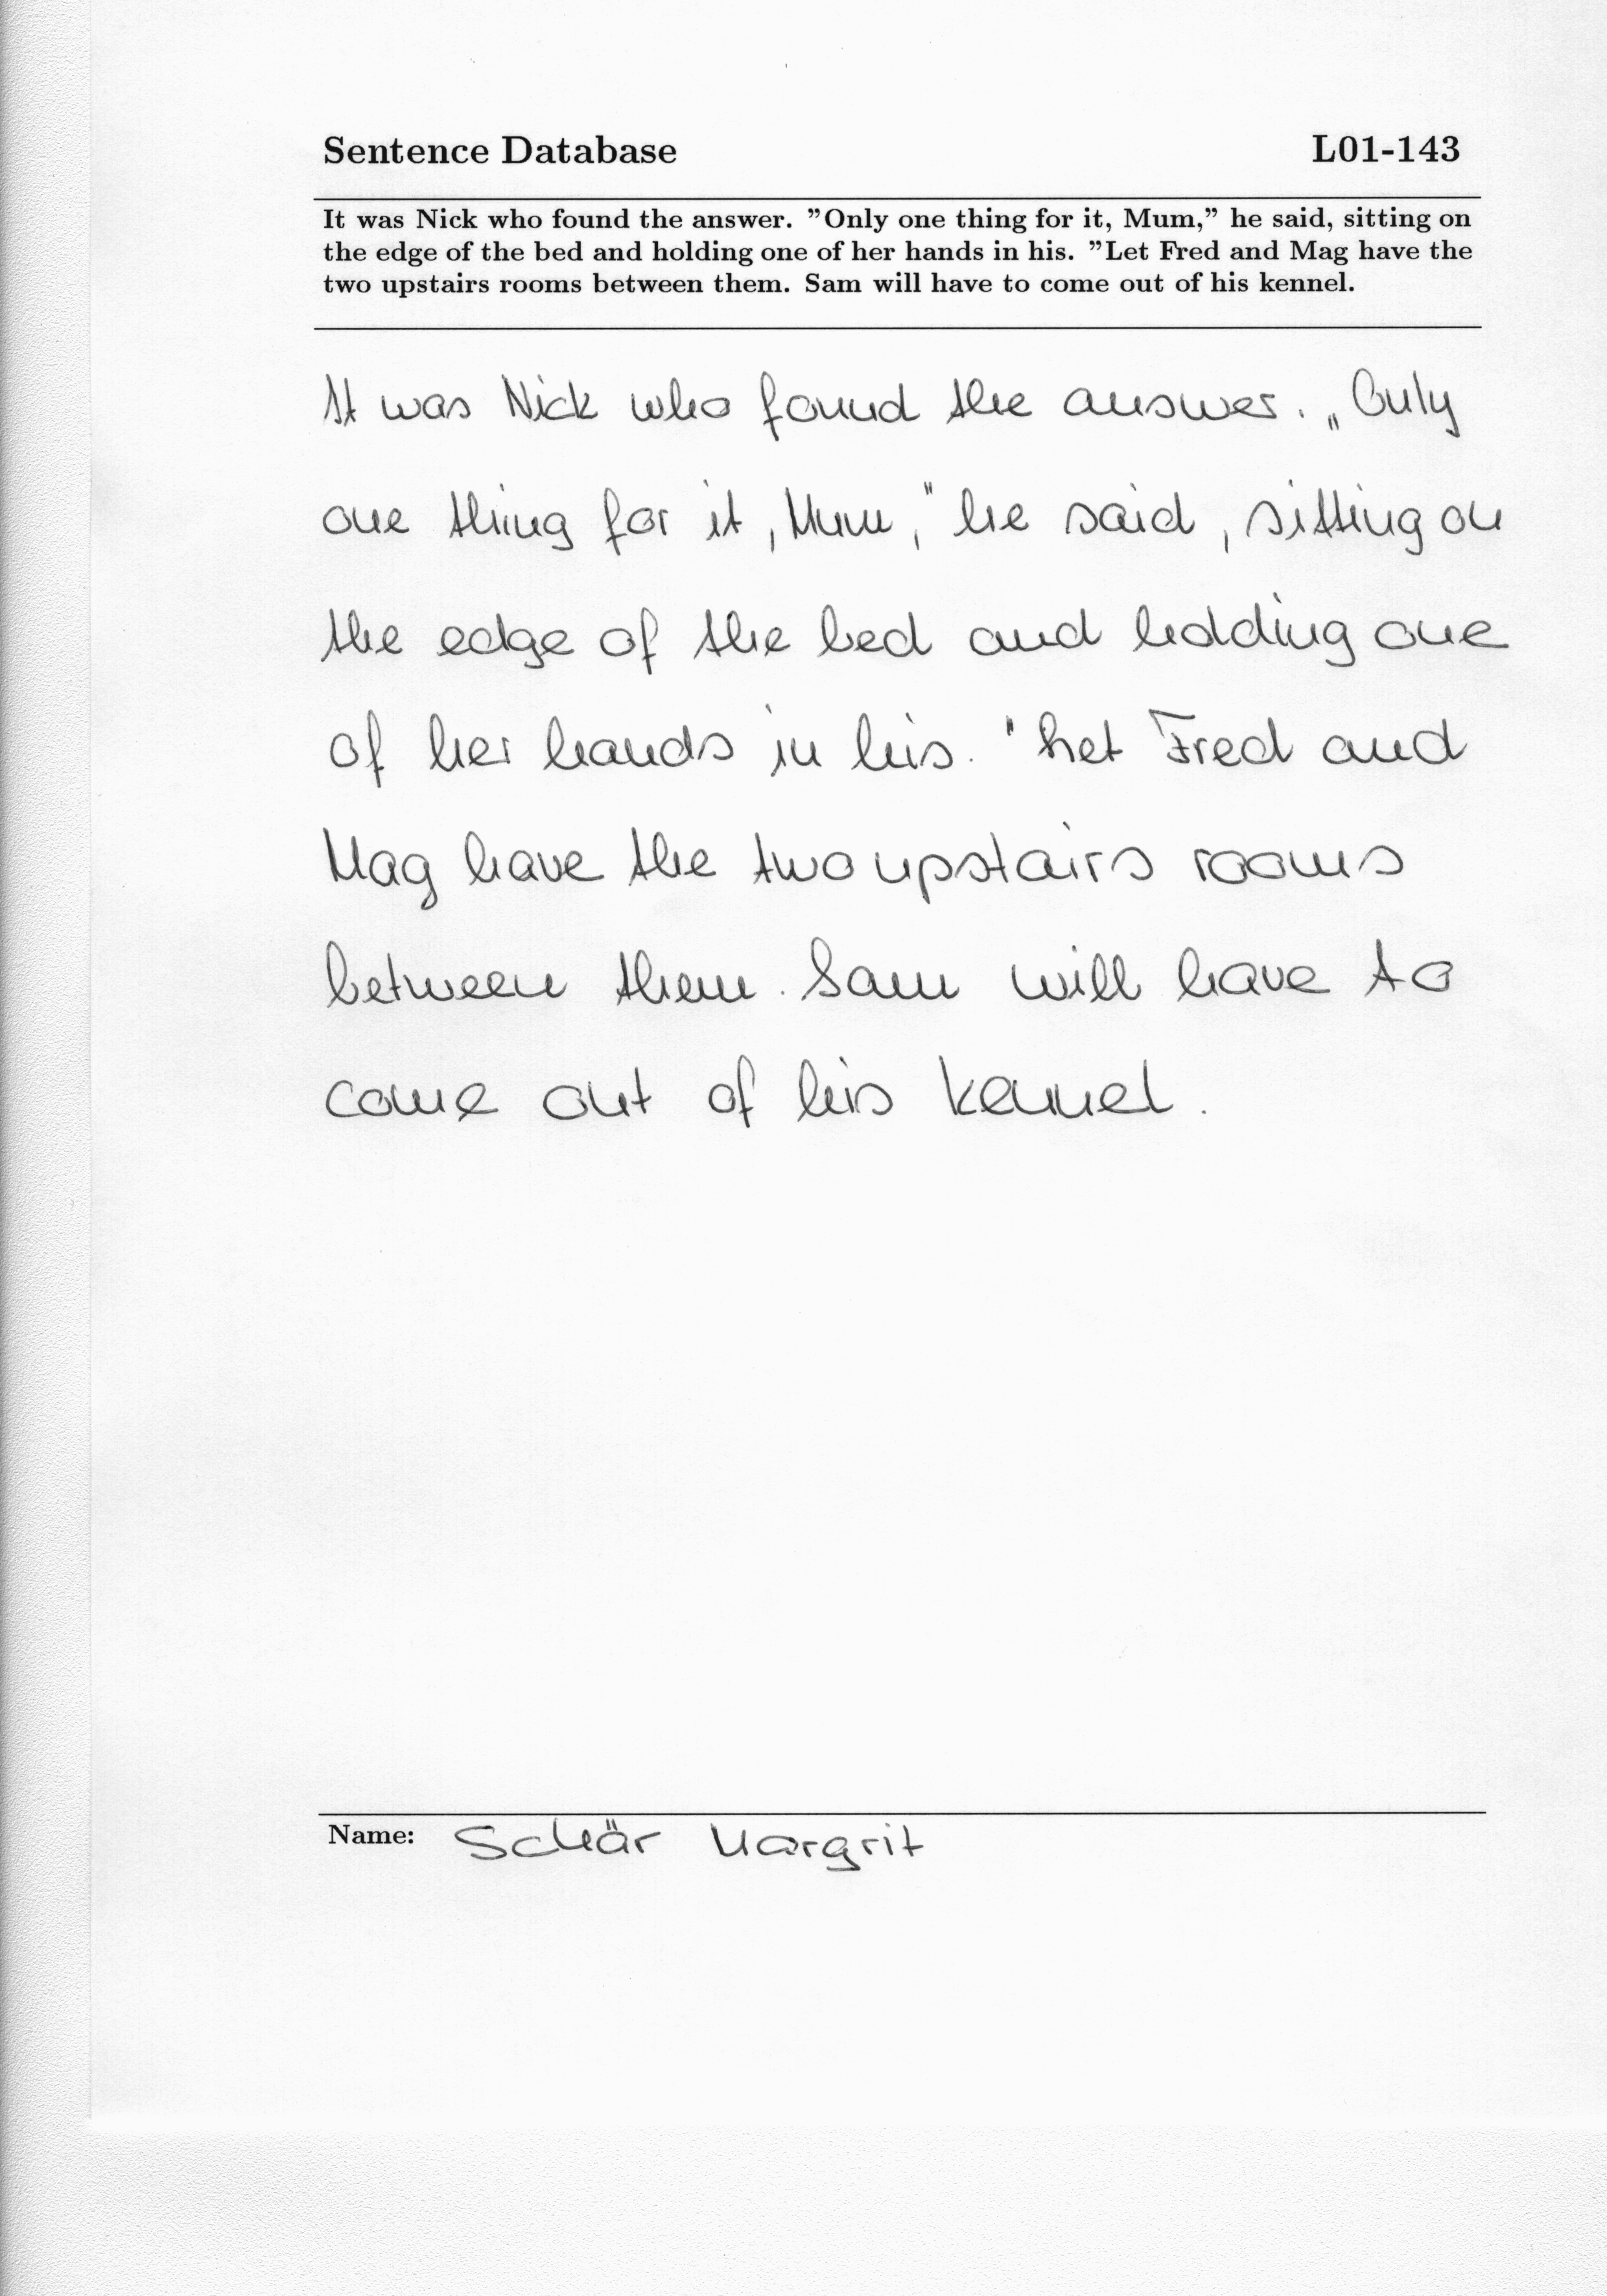 Sentence Database L01-143
It was Nick who found the answer. ”Only one thing for it, Mum,” he said, sitting on
the edge of the bed and holding one of her hands in his. ”Let Fred and Mag have the
two upstairs rooms between them. Sam will have to come out of his kennel.
It was Nick who found the answer. „Only
one thing for it, Mum," he said, sitting on
the edge of the bed and holding one
of her hands in his. "Let Fred and
Mag have the two upstairs rooms
between them. Sam will have to
come out of his kennel.
Name: Schär Margrit